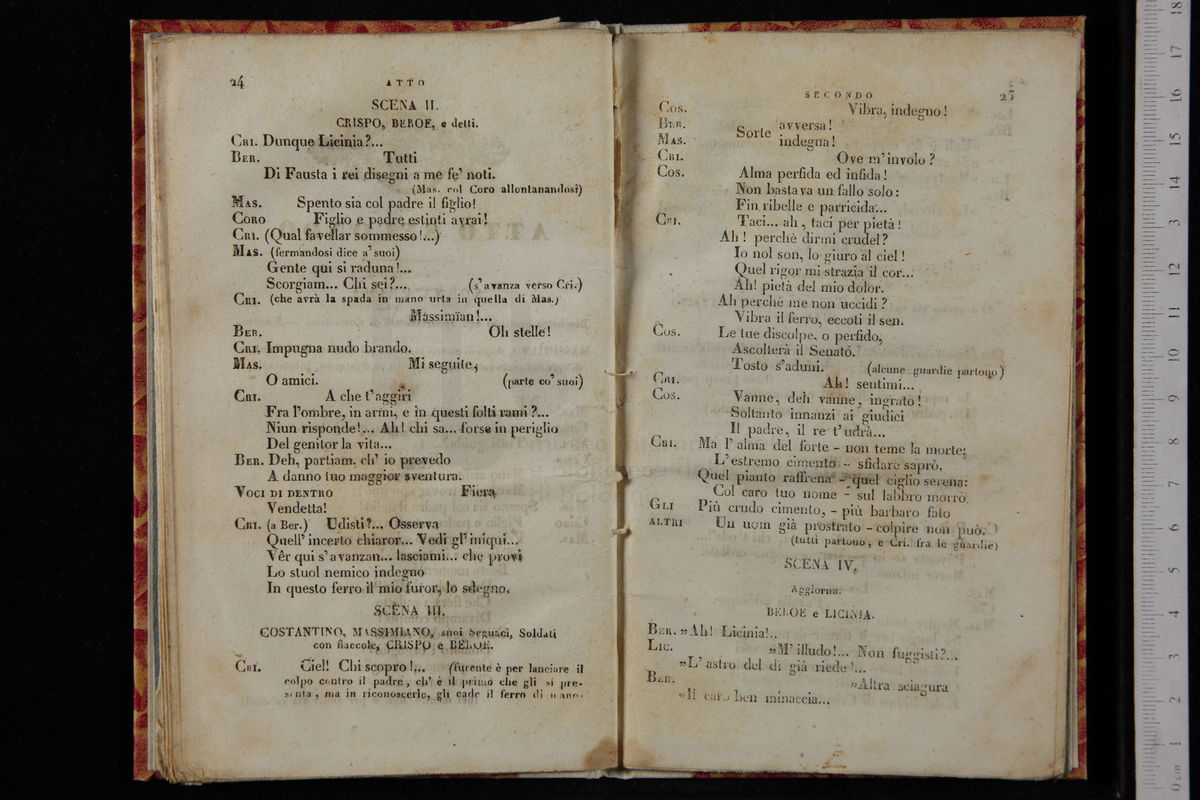 24
ATTO
SCENA II.
CRISPO, BEROE, e detti.
CRI. Dunque Licinia?...
BER. Tutti
Di Fausta i rei disegni a me fe' noti.
(Mas. col Coro allontanandosi)
MAS. Spento sia col padre il figlio!
CORO Figlio e padre estinti avrai!
CRI. (Qual favellar sommesso!...)
MAS. (fermandosi dice a' suoi)
Gente qui si raduna!...
Scorgiam... Chi sei?... (s'avanza verso Cri.)
CRI. (che avrà la spada in mano urta in quella di Mas.)
Massimïan!...
BER. Oh stelle!
CRI. Impugna nudo brando.
MAS. Mi seguite,
O amici. (parte co' suoi)
CRI. A che t'aggiri
Fra l'ombre, in armi, e in questi folti rami?...
Niun risponde!... Ah! chi sa... forse in periglio
Del genitor la vita...
BER. Deh, partiam, ch' io prevedo
A danno tuo maggior sventura.
VOCI DI DENTRO Fiera
Vendetta!
CRI. (a Ber.) Udisti?... Osserva
Quell' incerto chiaror... Vedi gl' iniqui...
Vêr qui s'avanzan... lasciami... che provi
Lo stuol nemico indegno
In questo ferro il mio furor, lo sdegno.
SCENA III.
COSTANTINO, MASSIMIANO, suoi Seguaci, Soldati
con fiaccole, CRISPO e BEROE.
CRI. Ciel! Chi scopro!... (furente è per lanciare il
colpo contro il padre, ch' è il primo che gli si pre-
senta, ma in riconoscerlo, gli cade il ferro di mano.
SECONDO
25
COS. Vibra, indegno!
BER. Sorte avversa!
MAS. indegna!
CRI. Ove m'involo?
COS. Alma perfida ed infida!
Non bastava un fallo solo:
Fin ribelle e parricida...
CRI. Taci... ah, taci per pietà!
Ah! perchè dirmi crudel?
Io nol son, lo giuro al ciel!
Quel rigor mi strazia il cor...
Ah! pietà del mio dolor.
Ah perchè me non uccidi?
Vibra il ferro, eccoti il sen.
COS. Le tue discolpe, o perfido,
Ascolterà il Senato.
Tosto s'aduni. (alcune guardie partono)
CRI. Ah! sentimi...
COS. Vanne, deh vanne, ingrato!
Soltanto innanzi ai giudici
Il padre, il re t'udrà...
CRI. Ma l'alma del forte - non teme la morte;
L'estremo cimento - sfidare saprò.
Quel pianto raffrena - quel ciglio serena:
Col caro tuo nome - sul labbro morrò.
GLI Più crudo cimento, - più barbaro fato
ALTRI Un uom già prostrato - colpire non può.
(tutti partono, e Cri. fra le guardie)
SCENA IV.
Aggiorna.
BEROE e LICINIA.
BER. »Ah! Licinia!..
LIC. »M'illudo!... Non fuggisti?...
»L'astro del dì già riede!...
BER. »Altra sciagura
»Il caro ben minaccia...